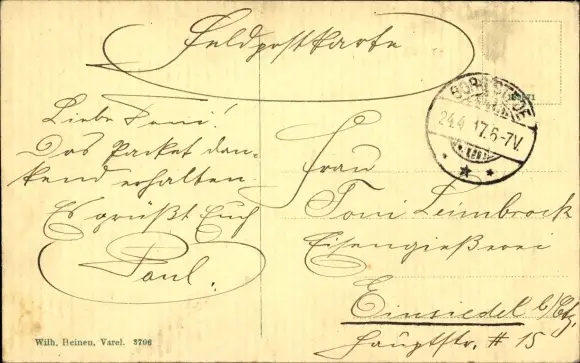 Feldpostkarte
Liebe Toni!
Das Packet dan-
kend erhalten.
Es grüßt Euch
Paul.
BORGSTEDE
24.4.17.6-7V.
Frau
Toni Leimbrock
Eisengießerei
Einsiedel b/Ctz,
Hauptstr. # 15
Wilh. Heinen, Varel. 3706